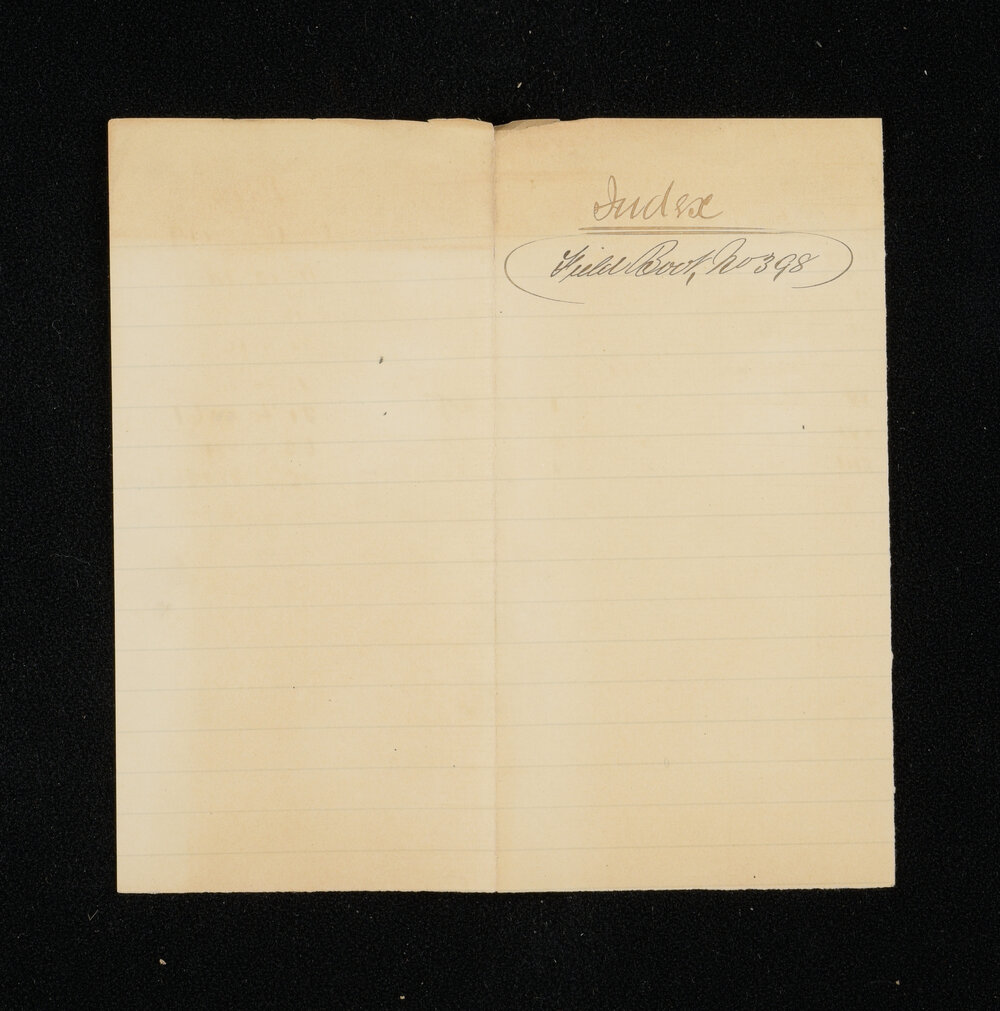 Index
Field Book, No 398